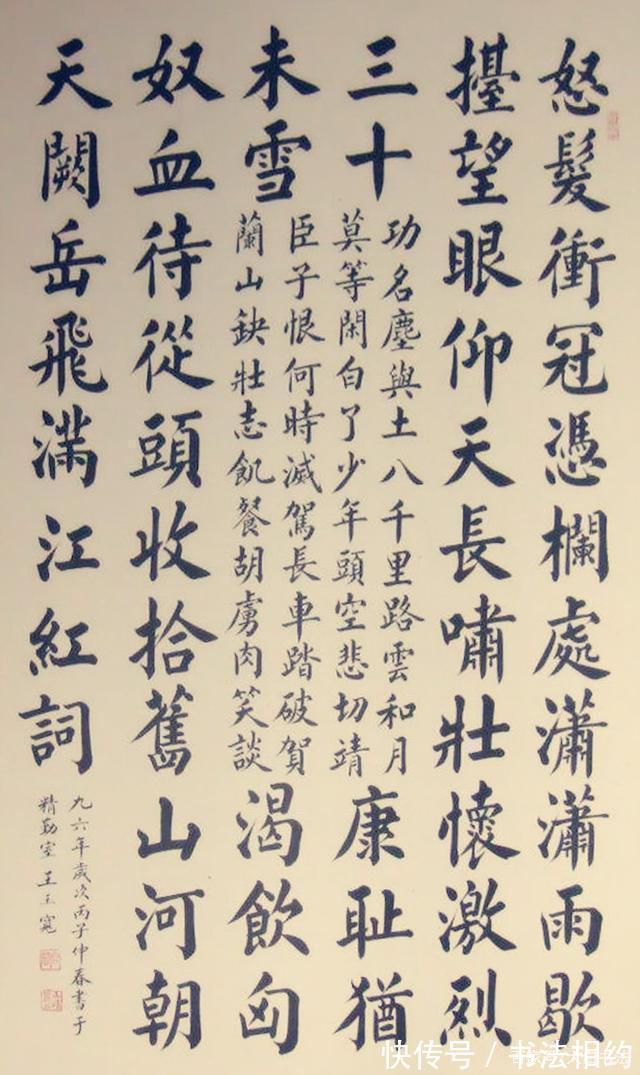 怒髮衝冠憑欄處瀟瀟雨歇
擡望眼仰天長嘯壯懷激烈
三十
功名塵與土八千里路雲和月
莫等閑白了少年頭空悲切靖
康耻猶
未雪
臣子恨何時滅駕長車踏破賀
蘭山缺壯志飢餐胡虜肉笑談
渴飲匈
奴血待從頭收拾舊山河朝
天闕岳飛滿江紅詞
九六年歲次丙子仲春書于
精勤室王玉寬
快传号 / 书法相约